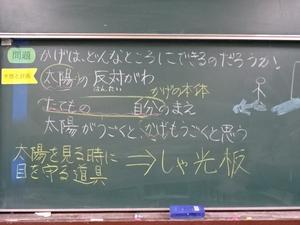 問題 かげは、どんなところにできるのだろうか!
予想と計画 太陽の反対がわ
はんたい
かげの本体
たてもの 自分のまえ
太陽がうごくと、かげもうごくと思う
太陽を見る時に
目を守る道具
⇒しゃ光板